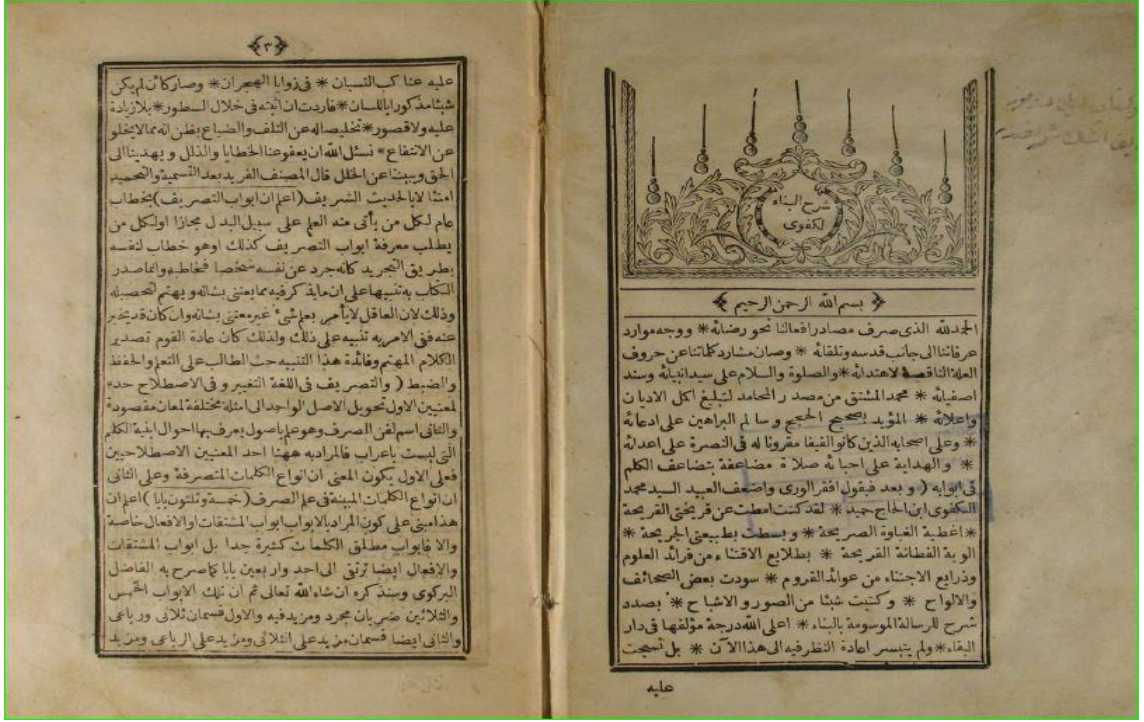 شرح البناء
لكفوى
بسم الله الرحمن الرحيم
الحمد لله الذى صرف مصادر افعالنا نحو رضائه * ووجه موارد
عرفاننا الى جانب قدسه وتلقائه * وصان مشارد كلماتنا عن حروف
العلة الناقصة لاهتدائه * والصلوة والسلام على سيد انبيائه وسند
اصفيائه * محمد المشتق من مصدر المحامد لتبليغ اكل الاديان
واعلائه * المؤيد بصحيح الحجج وسالم البراهين على ادعائه
* وعلى اصحابه الذين كانوا لفيفا مقرونا له فى النصرة على اعدائه
* والهداية على احبائه صلاة مضاعفة بتضاعف الكلم
فى ابوابه ( وبعد فيقول افقر الورى واضعف العبيد السيد محمد
الكفوى ابن الحاج حميد * لقد كنت امطت عن قريحتى القريحة
* اغطية الغباوة الصريحة * وبسطت بطبيعتى الجريحة *
الوية الفطانة القريحة * بطلايع الاقتناء من فرائد العلوم
وذرايع الاجتناء من عوائد القروم * سودت بعض الصحائف
والالواح * وكتبت شيئا من الصور والاشباح * بصدد
شرح للرسالة الموسومة بالبناء * اعلى الله درجة مؤلفها فى دار
البقاء * ولم يتيسر اعادة النظر فيه الى هذا الآن * بل نسجت
عليه
٣
عليه عناكب النسيان * فى زوايا الهجران * وصار كأن لم يكن
شيئا مذكورا باللسان * فاردت ان اثبته فى خلال السطور * بلا زيادة
عليه ولا قصور * تخليصا له عن التلف والضياع بظن انه مما لا يخلو
عن الانتفاع * نسئل الله ان يعفو عنا الخطايا والذلل ويهدينا الى
الحق ويبينا عن الخلل قال المصنف الفريد بعد التسمية والتحميد
امتثالا بالحديث الشريف ( اعلم ان ابواب التصريف ) بخطاب
عام لكل من يأتى منه العلم على سبيل البدل مجازا او لكل من
يطلب معرفة ابواب التصريف كذلك او هو خطاب لنفسه
بطريق التجريد كانه جرد عن نفسه شخصا فخاطبه وانما صدر
الكتاب به تنبيها على ان ما يذكر فيه مما يعتنى بشانه ويهتم لتحصيله
وذلك لان العاقل لا يأمر بعلم شئ غير معتنى بشانه وان كان قد يخبر
عنه ففى الامر به تنبيه على ذلك ولذلك كان عادة القوم تصدير
الكلام المهتم وفائدة هذا التنبيه حث الطالب على التعلم والحفظ
والضبط ( والتصريف فى اللغة التغيير وفى الاصطلاح حده
لمعنيين الاول تحويل الاصل الواحد الى امثلة مختلفة لمعان مقصودة
والثانى اسم لفن الصرف وهو علم باصول يعرف بها احوال ابنية الكلم
التى ليست باعراب فالمراد به ههنا احد المعنيين الاصطلاحيين
فعلى الاول يكون المعنى ان انواع الكلمات المتصرفة وعلى الثانى
ان انواع الكلمات المبينة فى علم الصرف ( خمسة وثلثون بابا ) اعلم ان
هذا مبنى على كون المراد بالابواب ابواب المشتقات او الافعال خاصة
والا فابواب مطلق الكلمات كثيرة جدا بل ابواب المشتقات
والافعال ايضا ترتقى الى احد واربعين بابا كما صرح به الفاضل
البركوى وسنذكره ان شاء الله تعالى ثم ان تلك الابواب الخمس
والثلاثين ضربان مجرد ومزيد فيه والاول قسمان ثلاثى ورباعى
والثانى ايضا قسمان مزيد على الثلاثى ومزيد على الرباعى ومزيد